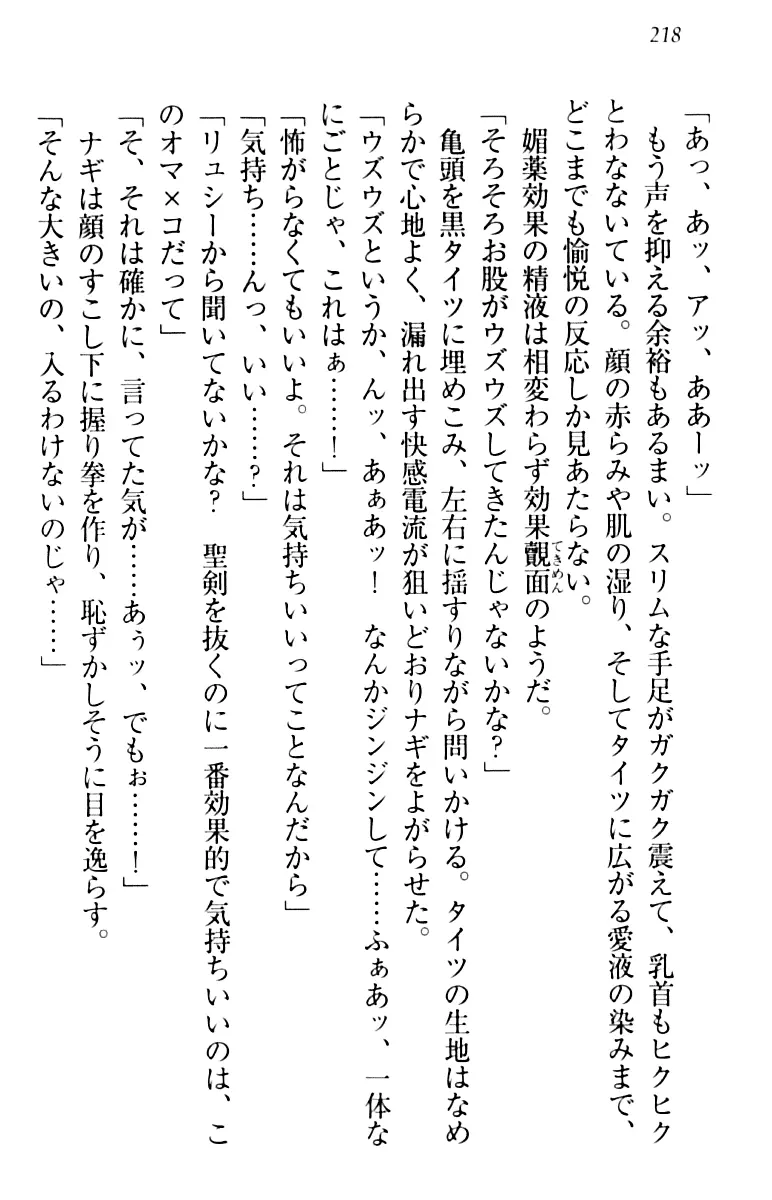 218
「あっ、あッ、アッ、ああーッ」
もう声を抑える余裕もあるまい。スリムな手足がガクガク震えて、乳首もヒクヒク
とわなないている。顔の赤らみや肌の湿り、そしてタイツに広がる愛液の染みまで、
どこまでも愉悦の反応しか見あたらない。
媚薬効果の精液は相変わらず効果覿面てきめんのようだ。
「そろそろお股がウズウズしてきたんじゃないかな?」
亀頭を黒タイツに埋めこみ、左右に揺すりながら問いかける。タイツの生地はなめ
らかで心地よく、漏れ出す快感電流が狙いどおりナギをよがらせた。
「ウズウズというか、んッ、あぁあッ! なんかジンジンして……ふぁあッ、一体な
にごとじゃ、これはぁ……!」
「怖がらなくてもいいよ。それは気持ちいいってことなんだから」
「気持ち……んっ、いい……?」
「リュシーから聞いてないかな? 聖剣を抜くのに一番効果的で気持ちいいのは、こ
のオマ×コだって」
「そ、それは確かに、言ってた気が……あぅッ、でもぉ……!」
ナギは顔のすこし下に握り拳を作り、恥ずかしそうに目を逸らす。
「そんな大きいの、入るわけないのじゃ……」